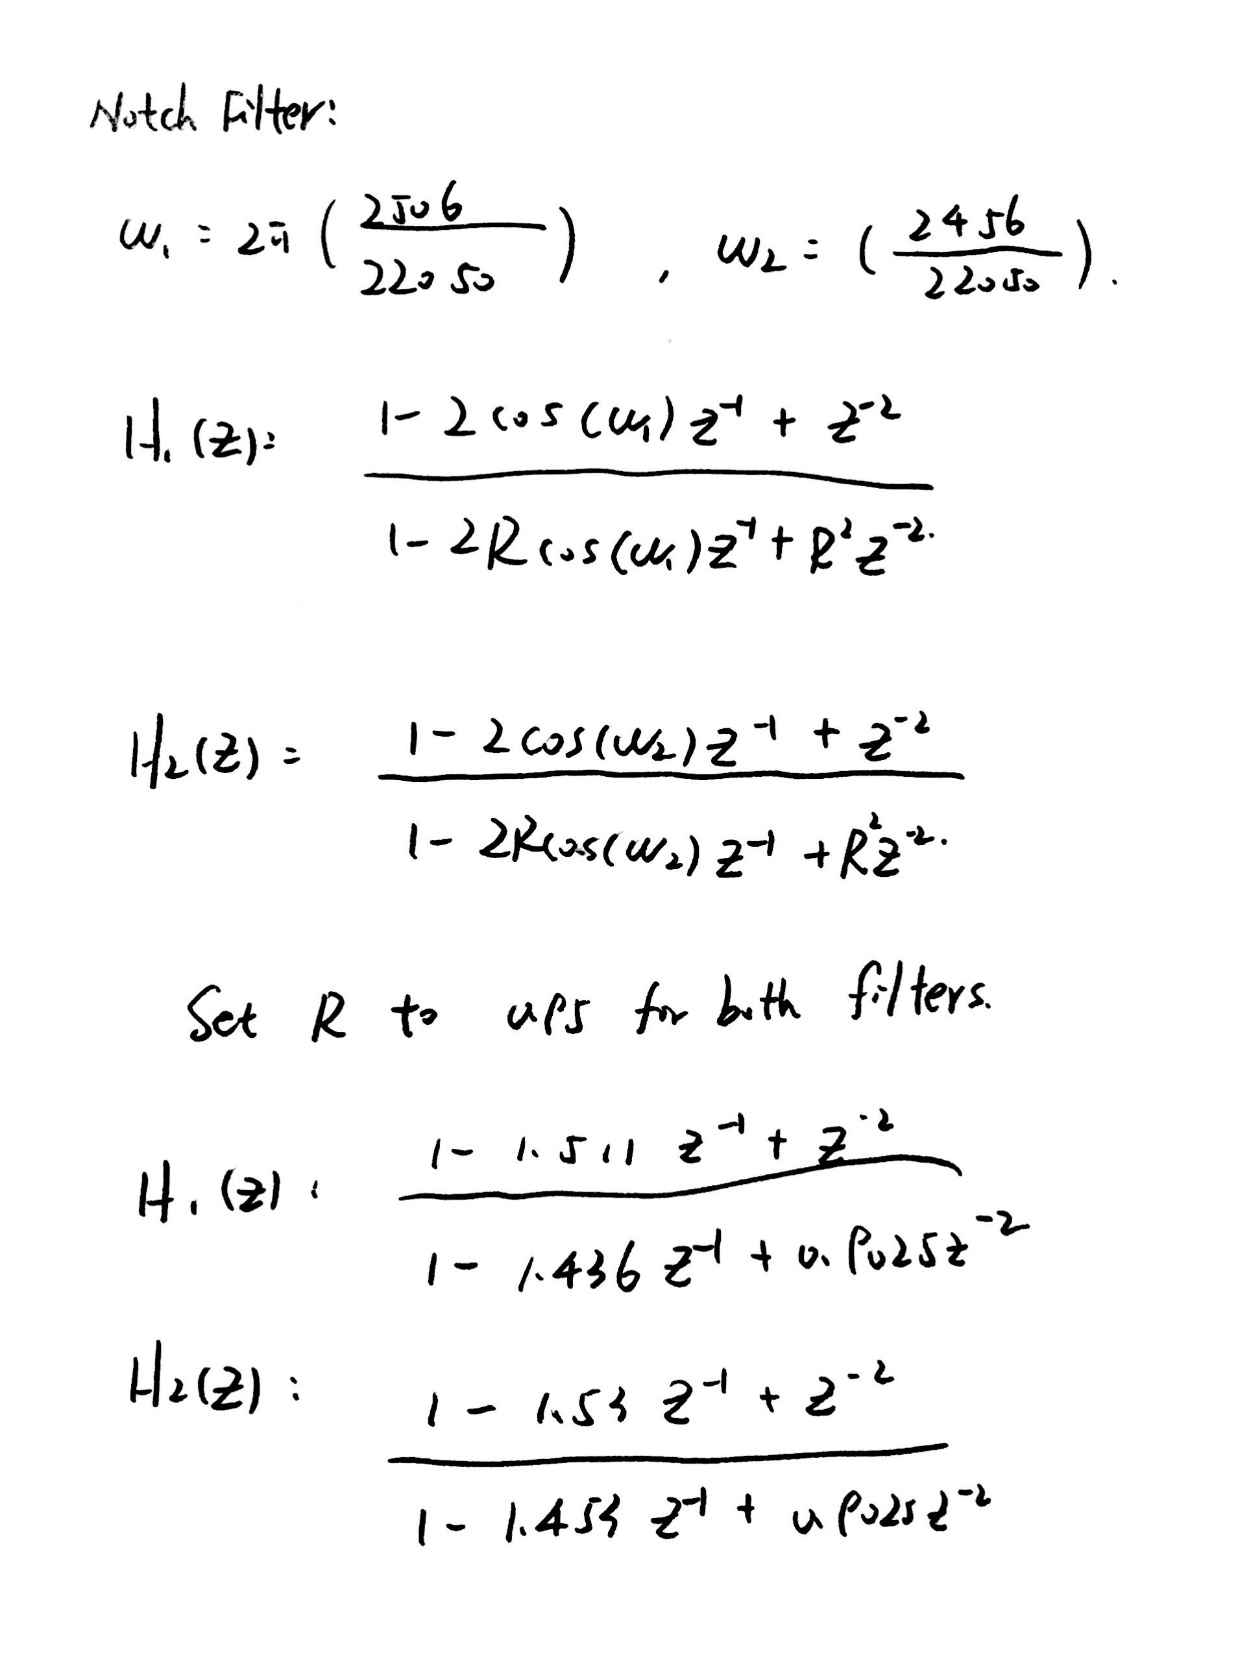 Notch Filter:
ω₁ = 2π ( 2506 / 22050 ) , ω₂ = ( 2456 / 22050 ).
H₁(z) = 
1 - 2 cos(ω₁) z⁻¹ + z⁻²
1 - 2R cos(ω₁) z⁻¹ + R² z⁻².
H₂(z) = 
1 - 2 cos(ω₂) z⁻¹ + z⁻²
1 - 2R cos(ω₂) z⁻¹ + R² z⁻².
Set R to 0.95 for both filters.
H₁(z) :
1 - 1.511 z⁻¹ + z⁻²
1 - 1.436 z⁻¹ + 0.9025 z⁻²
H₂(z) :
1 - 1.53 z⁻¹ + z⁻²
1 - 1.453 z⁻¹ + 0.9025 z⁻²